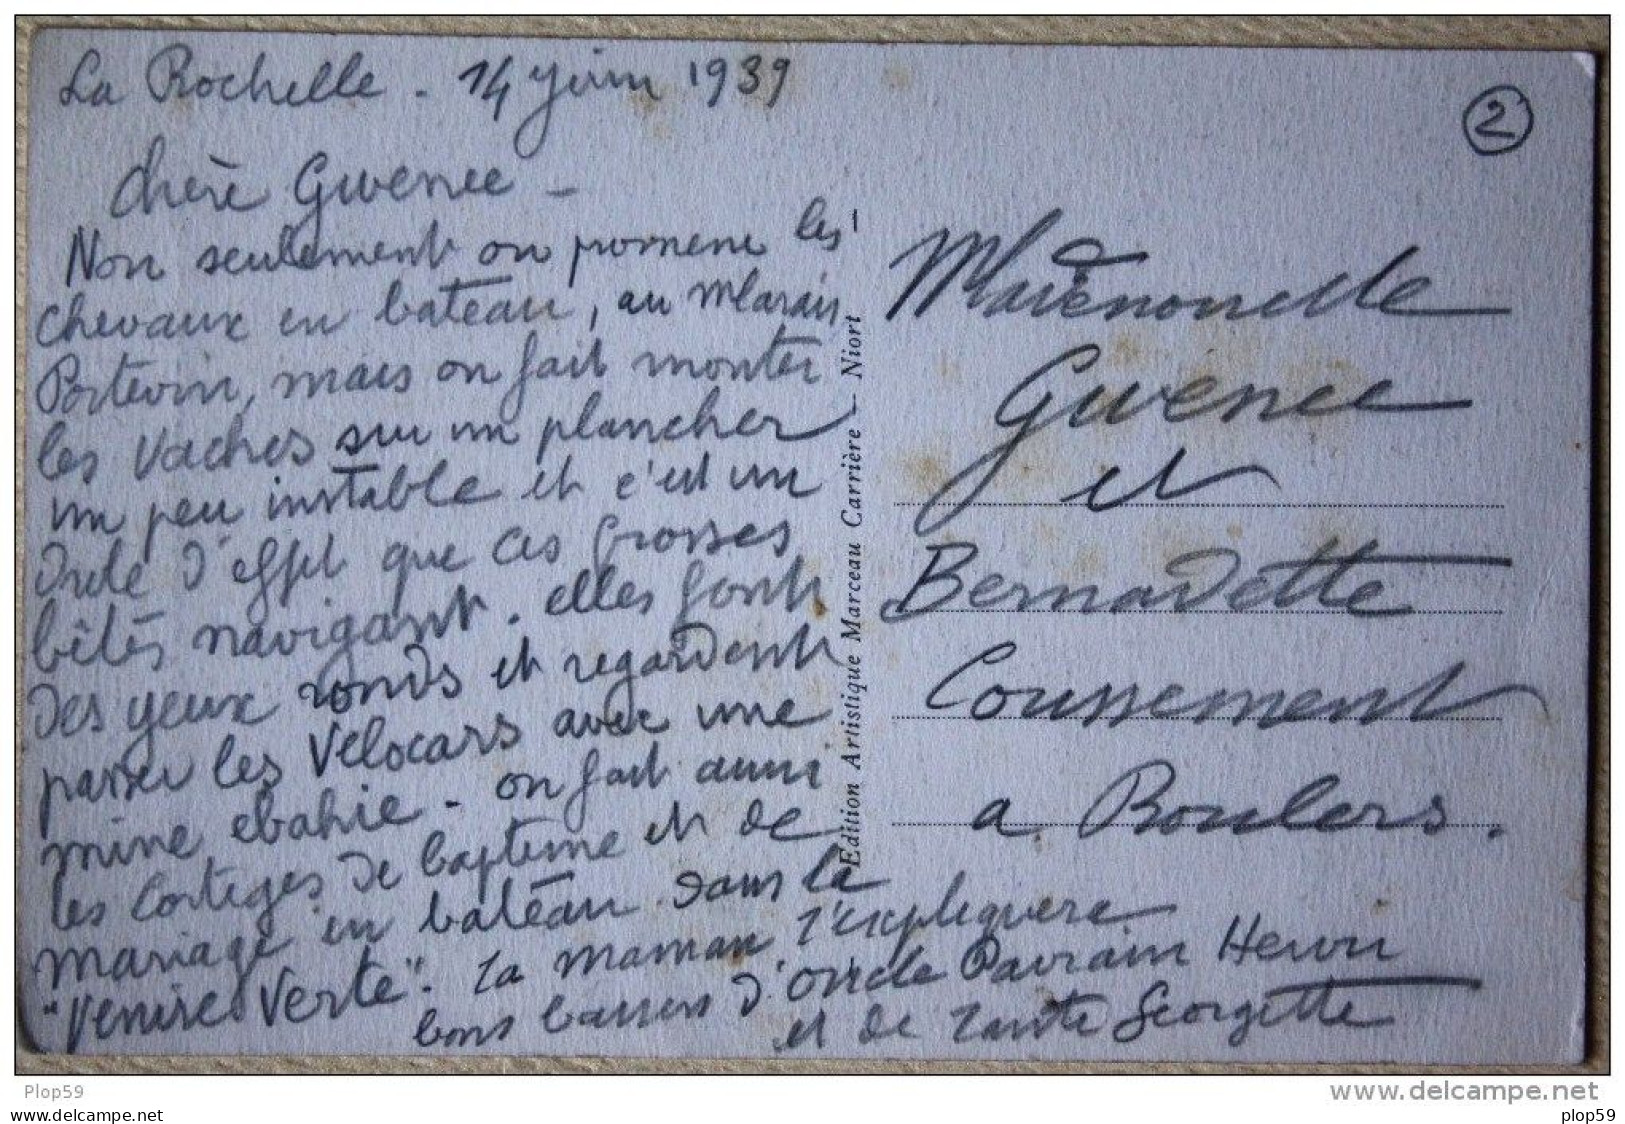 La Rochelle - 14 juin 1939
2
Chère Gwenee -
Non seulement on promène les
chevaux en bateau, au Marais
Poitevin, mais on fait monter
les vaches sur un plancher
un peu instable et c'est un
drôle d'effet que ces grosses
bêtes navigant. elles font
des yeux ronds et regardent
passer les Vélocars avec une
mine ébahie - on fait aussi
les cortèges de baptême et de
mariage en bateau dans la
"Venise Verte". Ta maman t'expliquera
bons baisers d'oncle Parrain Henri
et de Tante Georgette
Edition Artistique Marceau Carrière — Niort
Mademoiselle
Gwenee
et
Bernadette
Coussement
a Roulers.
Plop59
www.delcampe.net
plop59
plop59